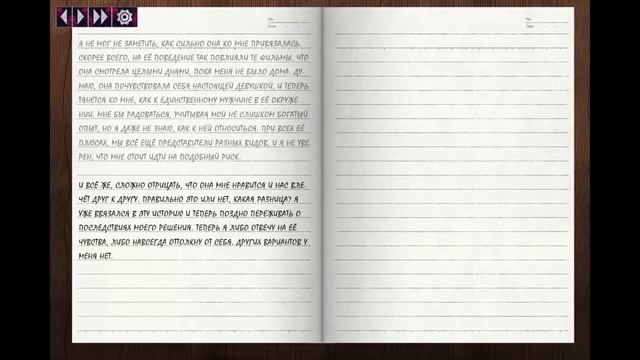 Я НЕ МОГ НЕ ЗАМЕТИТЬ, КАК СИЛЬНО ОНА КО МНЕ ПРИВЯЗАЛАСЬ.
СКОРЕЕ ВСЕГО, НА ЕЁ ПОВЕДЕНИЕ ТАК ПОВЛИЯЛИ ТЕ ФИЛЬМЫ, ЧТО
ОНА СМОТРЕЛА ЦЕЛЫМИ ДНЯМИ, ПОКА МЕНЯ НЕ БЫЛО ДОМА. ДУ-
МАЮ, ОНА ПОЧУВСТВОВАЛА СЕБЯ НАСТОЯЩЕЙ ДЕВУШКОЙ, И ТЕПЕРЬ
ТЯНЕТСЯ КО МНЕ, КАК К ЕДИНСТВЕННОМУ МУЖЧИНЕ В ЕЁ ОКРУЖЕ-
НИИ. МНЕ БЫ РАДОВАТЬСЯ, УЧИТЫВАЯ МОЙ НЕ СЛИШКОМ БОГАТЫЙ
ОПЫТ, НО Я ДАЖЕ НЕ ЗНАЮ, КАК К НЕЙ ОТНОСИТЬСЯ. ПРИ ВСЕХ ЕЁ
ПЛЮСАХ, МЫ ВСЁ ЕЩЁ ПРЕДСТАВИТЕЛИ РАЗНЫХ ВИДОВ, И Я НЕ УВЕ-
РЕН, ЧТО МНЕ СТОИТ ИДТИ НА ПОДОБНЫЙ РИСК.
И ВСЁ ЖЕ, СЛОЖНО ОТРИЦАТЬ, ЧТО ОНА МНЕ НРАВИТСЯ И НАС ВЛЕ-
ЧЁТ ДРУГ К ДРУГУ. ПРАВИЛЬНО ЭТО ИЛИ НЕТ, КАКАЯ РАЗНИЦА? Я
УЖЕ ВВЯЗАЛСЯ В ЭТУ ИСТОРИЮ И ТЕПЕРЬ ПОЗДНО ПЕРЕЖИВАТЬ О
ПОСЛЕДСТВИЯХ МОЕГО РЕШЕНИЯ. ТЕПЕРЬ Я ЛИБО ОТВЕЧУ НА ЕЁ
ЧУВСТВА, ЛИБО НАВСЕГДА ОТТОЛКНУ ОТ СЕБЯ. ДРУГИХ ВАРИАНТОВ У
МЕНЯ НЕТ.